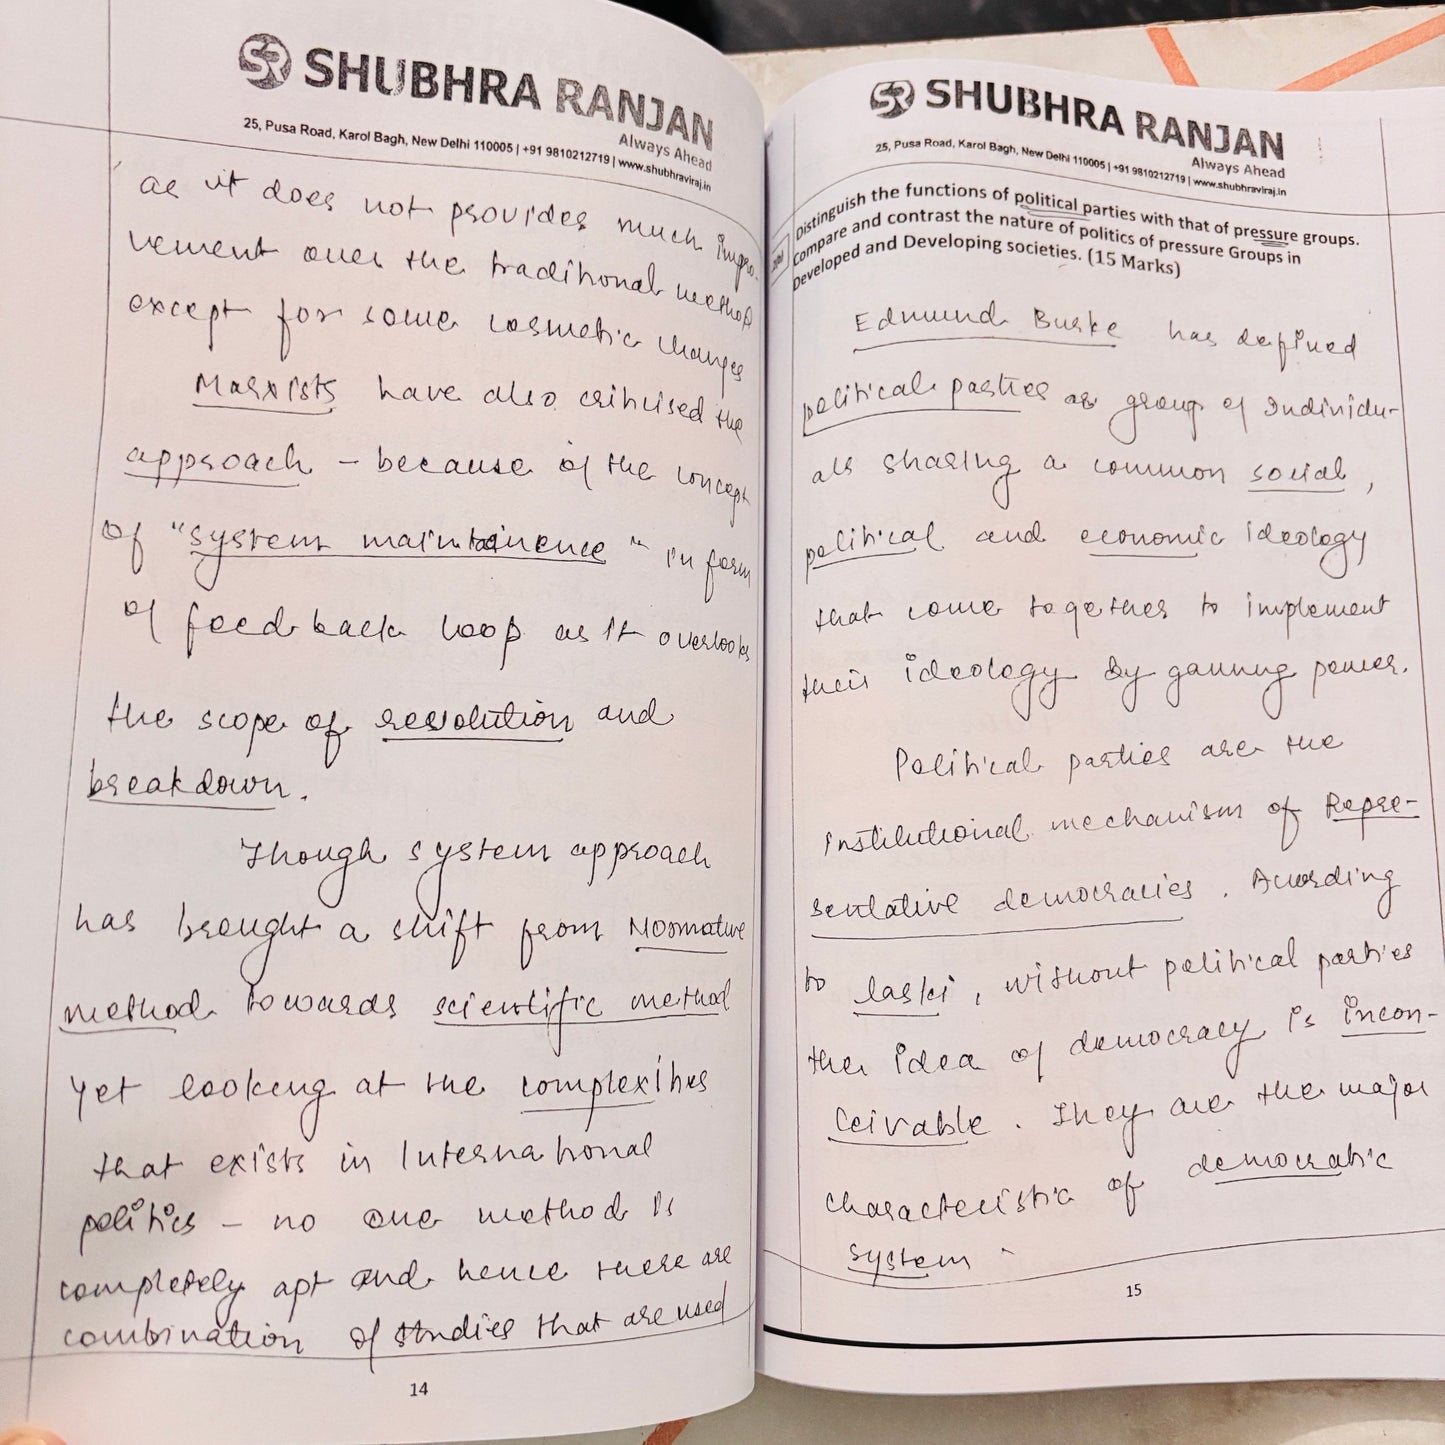 SHUBHRA RANJAN
Always Ahead
25, Pusa Road, Karol Bagh, New Delhi 110005 | +91 9810212719 | www.shubhraviraj.in
as it does not provides much impro-
vement over the traditional method
except for some cosmetic changes
Marxists have also criticised the
approach - because of the concept
of "system maintainence" in form
of feedback loop as it overlooks
the scope of revolution and
breakdown.
Though system approach
has brought a shift from Normative
method towards scientific method
yet looking at the complexities
that exists in International
politics - no one method is
completely apt and hence there are
combination of studies that are used
14
SHUBHRA RANJAN
Always Ahead
25, Pusa Road, Karol Bagh, New Delhi 110005 | +91 9810212719 | www.shubhraviraj.in
Distinguish the functions of political parties with that of pressure groups.
Compare and contrast the nature of politics of pressure Groups in
Developed and Developing societies. (15 Marks)
Edmund Burke has defined
political parties as group of Individu-
als sharing a common social,
political and economic ideology
that come together to implement
their ideology by gaining power.
Political parties are the
institutional mechanism of Repre-
sentative democracies. According
to laski, without political parties
the idea of democracy is incon-
ceivable. They are the major
characteristic of democratic
system.
15